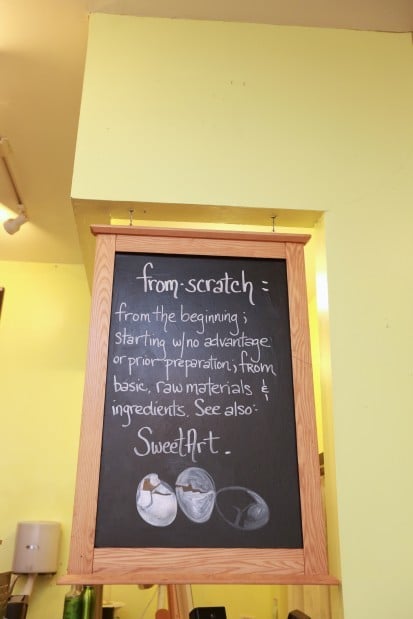 from-scratch =
from the beginning;
starting w/no advantage
or prior preparation; from
basic, raw materials &
ingredients. See also:
SweetArt.